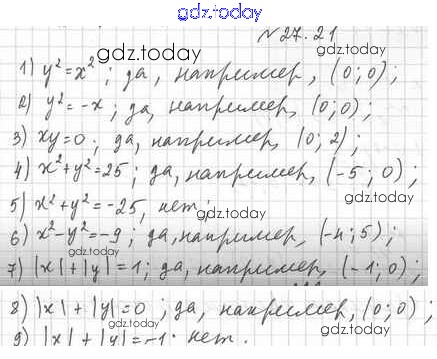 gdz.today
№ 27.21
gdz.today
1) y² = x²; да, например, (0; 0);
2) y² = -x; да, например, (0; 0);
gdz.today
3) xy = 0; да, например, (0; 2);
4) x² + y² = 25; да, например, (-5; 0);
5) x² + y² = -25, нет;
gdz.today
6) x² - y² = -9; да, например, (-4; 5);
gdz.today
7) |x| + |y| = 1; да, например, (-1; 0);
8) |x| + |y| = 0; да, например, (0; 0);
gdz.today
gdz.today
9) |x| + |y| = -1. нет.